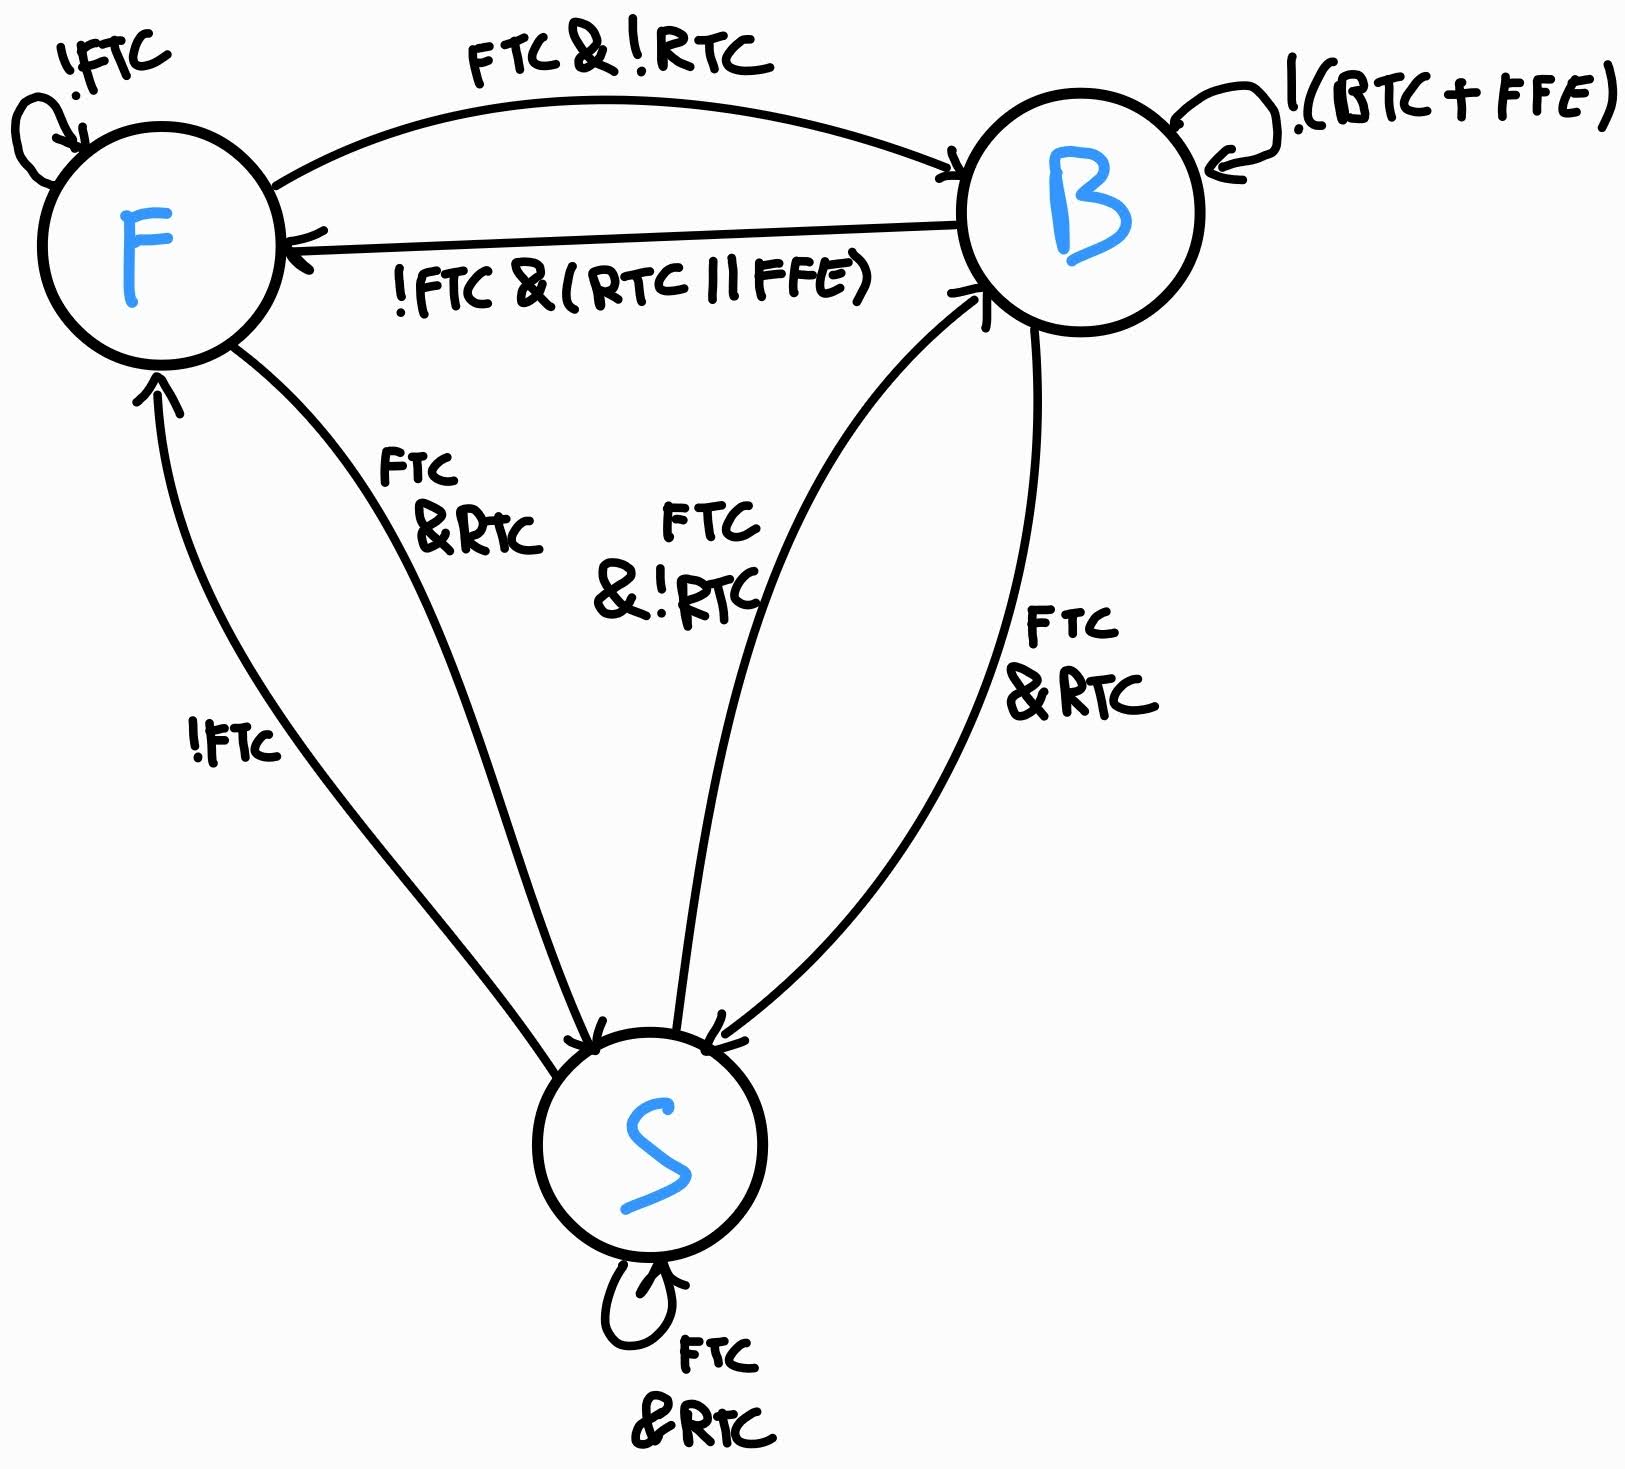 !FTC
FTC & !RTC
!(BTC + FFE)
F
B
!FTC & (RTC || FFE)
FTC
& RTC
FTC
& !RTC
FTC
& RTC
!FTC
S
FTC
& RTC